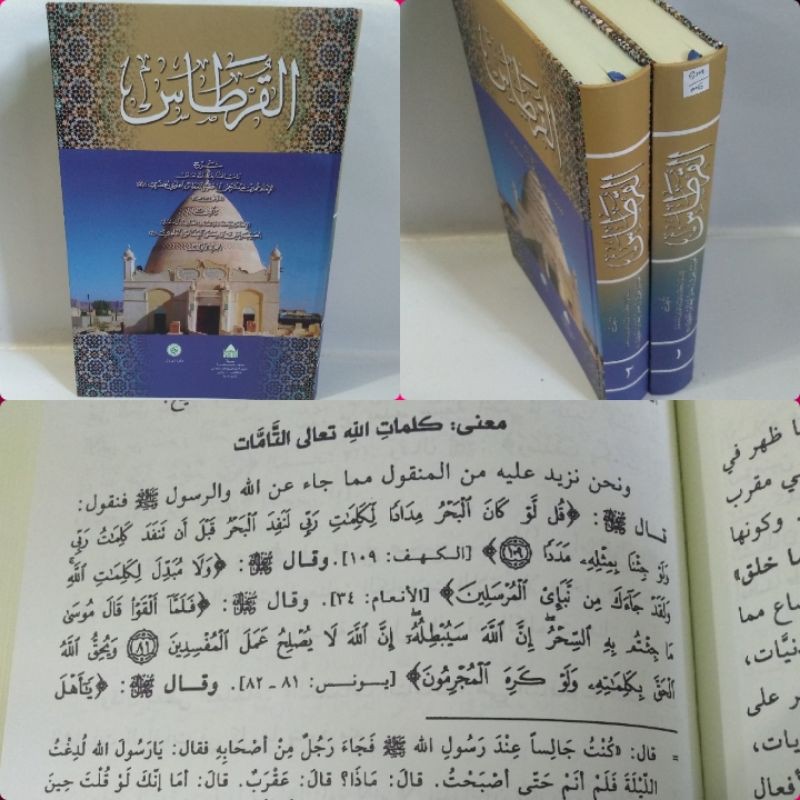 القرطاس
شرح
القرطاس
٢
القرطاس
١
معنى: كلماتِ اللهِ تعالى التَّامَّات
ونحن نزيد عليه من المنقول مما جاء عن الله والرسول ﷺ فنقول:
قال ﷻ: ﴿قُل لَّوۡ كَانَ ٱلۡبَحۡرُ مِدَادٗا لِّكَلِمَٰتِ رَبِّي لَنَفِدَ ٱلۡبَحۡرُ قَبۡلَ أَن تَنفَدَ كَلِمَٰتُ رَبِّي
وَلَوۡ جِئۡنَا بِمِثۡلِهِۦ مَدَدٗا ١٠٩﴾ [الكهف: ١٠٩]. وقال ﷻ: ﴿وَلَا مُبَدِّلَ لِكَلِمَٰتِ ٱللَّهِۚ
وَلَقَدۡ جَآءَكَ مِن نَّبَإِيْ ٱلۡمُرۡسَلِينَ﴾ [الأنعام: ٣٤]. وقال ﷻ: ﴿فَلَمَّآ أَلۡقَوۡاْ قَالَ مُوسَىٰ
مَا جِئۡتُم بِهِ ٱلسِّحۡرُۖ إِنَّ ٱللَّهَ سَيُبۡطِلُهُۥٓ إِنَّ ٱللَّهَ لَا يُصۡلِحُ عَمَلَ ٱلۡمُفۡسِدِينَ ٨١ وَيُحِقُّ ٱللَّهُ
ٱلۡحَقَّ بِكَلِمَٰتِهِۦ وَلَوۡ كَرِهَ ٱلۡمُجۡرِمُونَ﴾ [يونس: ٨١ - ٨٢]. وقال ﷻ: ﴿يَٰٓأَهۡلَ
= قال: «كُنْتُ جَالِساً عِنْدَ رَسُولِ الله ﷺ فَجَاءَ رَجُلٌ مِنْ أصْحَابِهِ فقال: يَارَسُولَ الله لُدِغْتُ
اللّيْلَةَ فَلَمْ أنَمْ حَتّى أصْبَحْتُ. قال: مَاذَا؟ قال: عَقْرَبٌ. قال: أمَا إنّكَ لَوْ قُلْتَ حِينَ
ا ظهر في
ي مقرب
وكونها
ما خلق»
ساع مما
نيَّات،
ر على
ريات،
أفعال